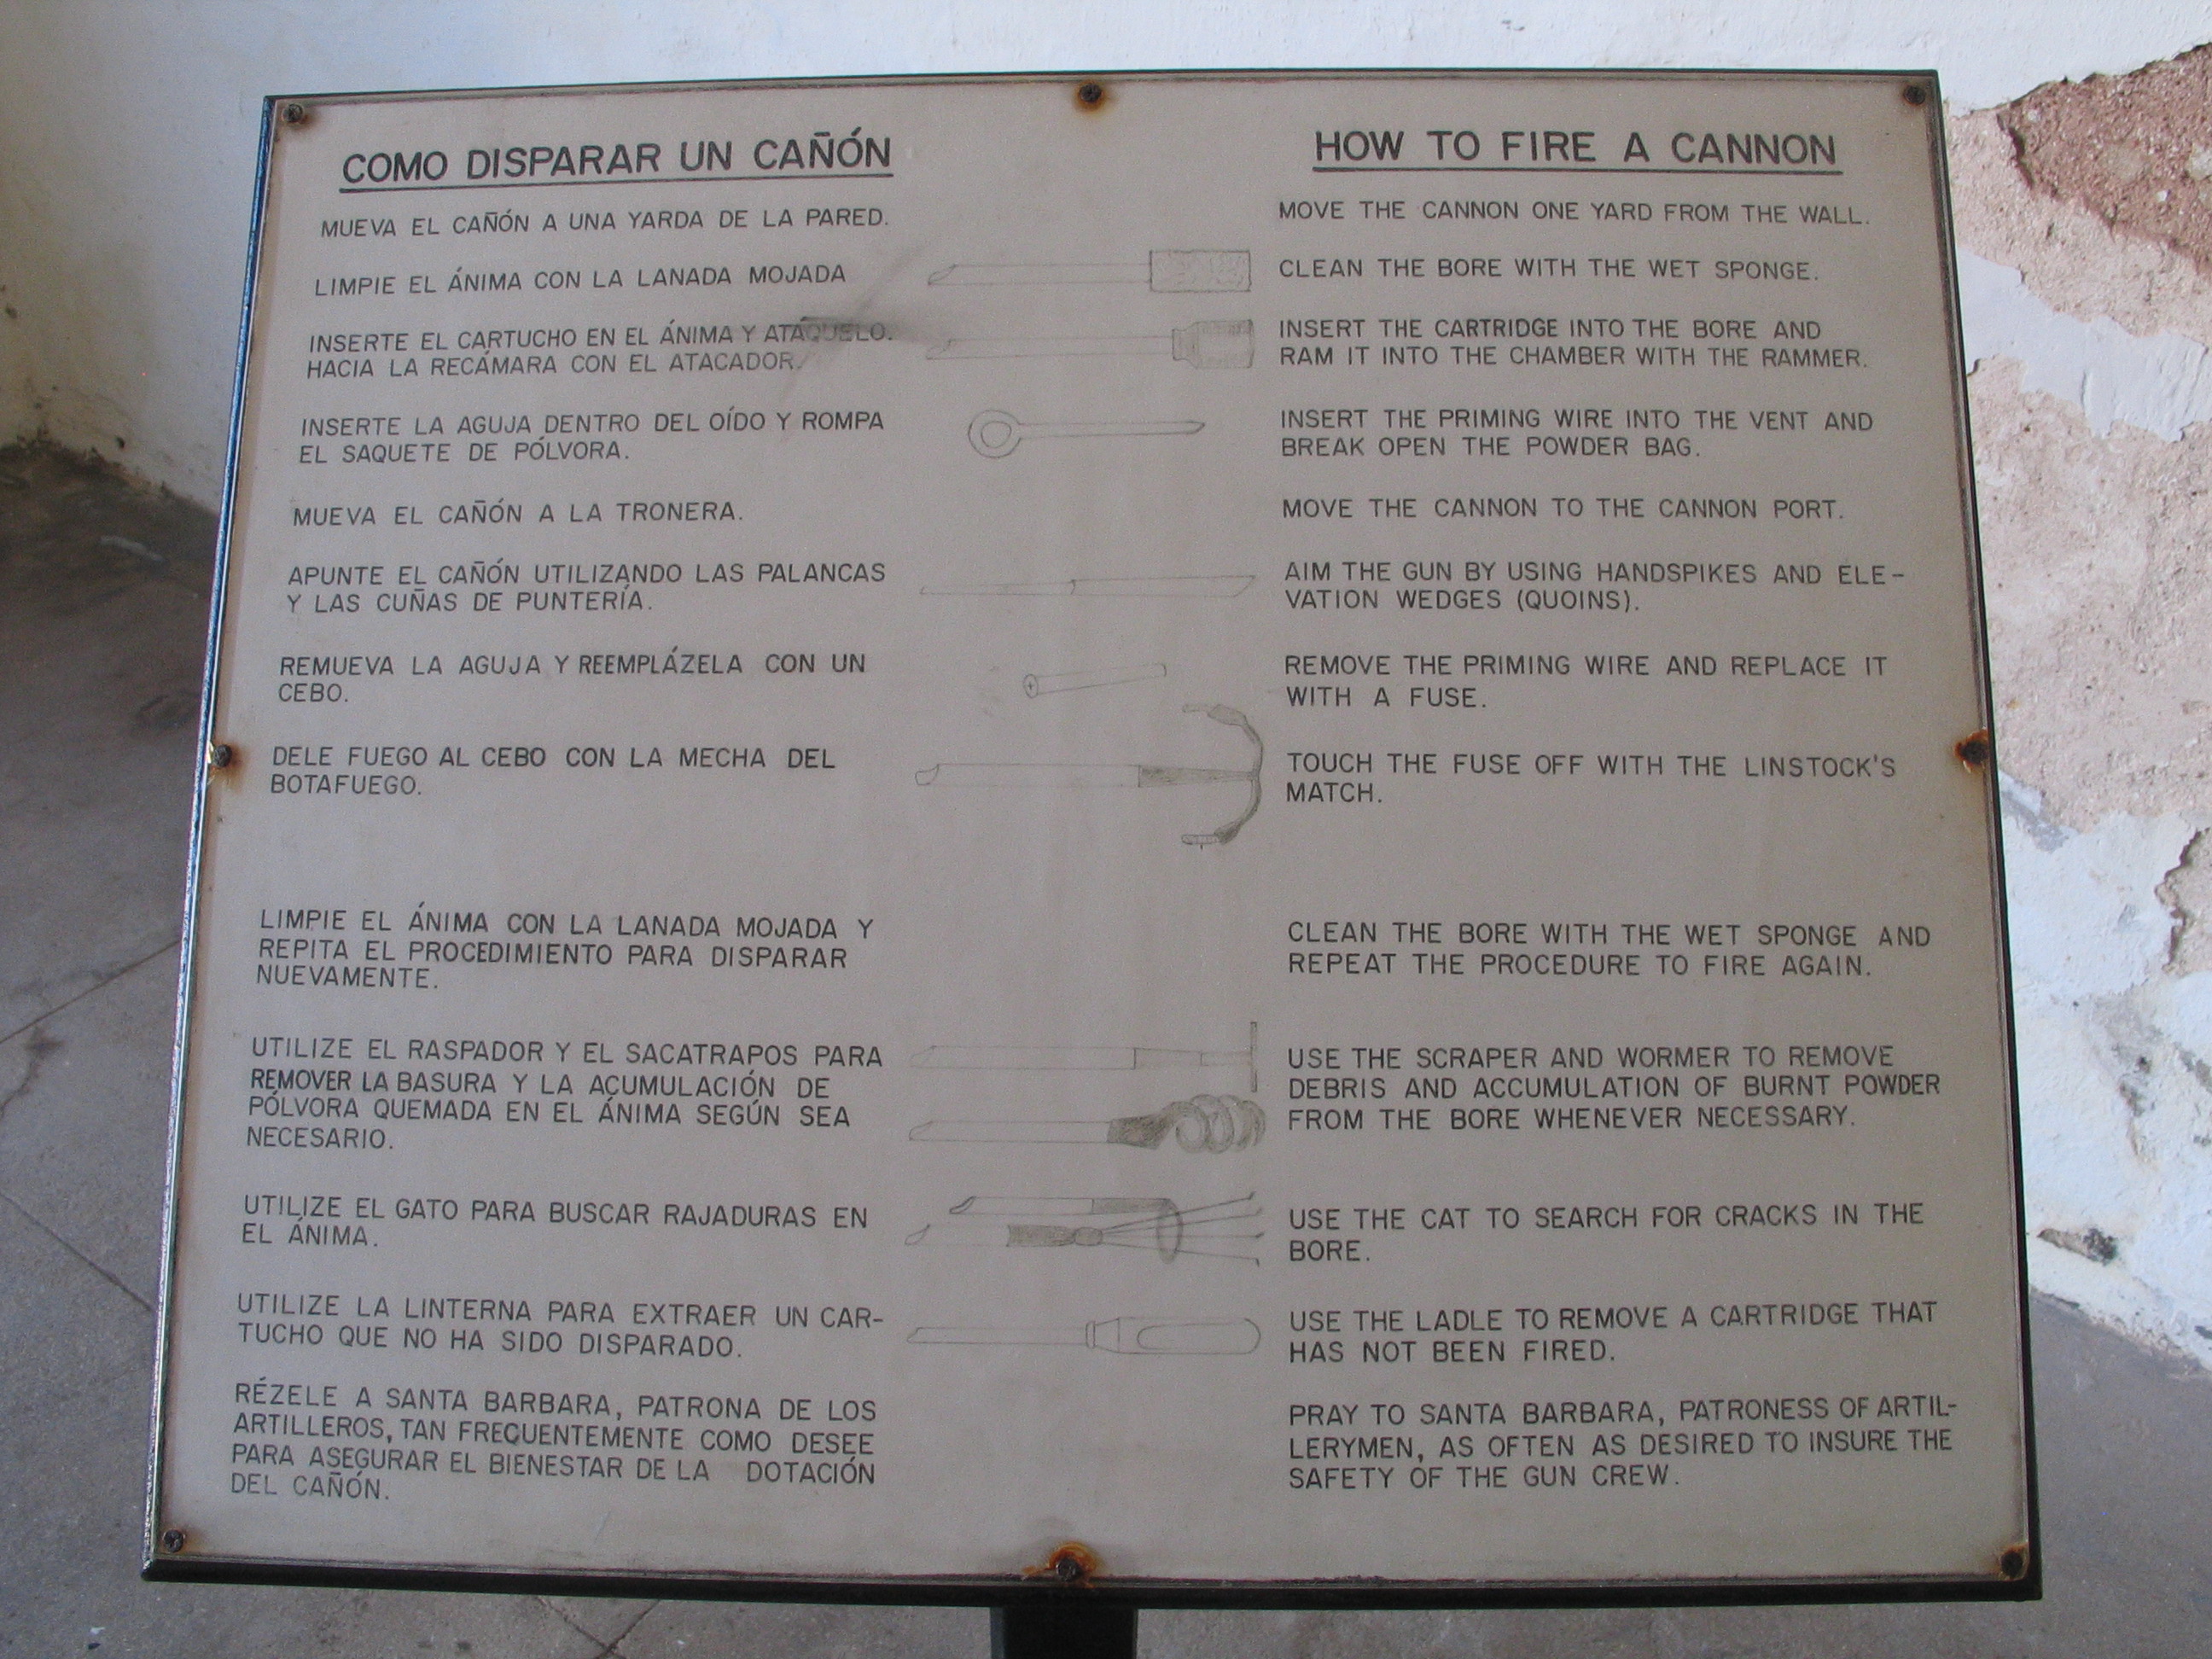 COMO DISPARAR UN CAÑÓN
MUEVA EL CAÑÓN A UNA YARDA DE LA PARED.
LIMPIE EL ÁNIMA CON LA LANADA MOJADA
INSERTE EL CARTUCHO EN EL ÁNIMA Y ATÁQUELO.
HACIA LA RECÁMARA CON EL ATACADOR.
INSERTE LA AGUJA DENTRO DEL OÍDO Y ROMPA
EL SAQUETE DE PÓLVORA.
MUEVA EL CAÑÓN A LA TRONERA.
APUNTE EL CAÑÓN UTILIZANDO LAS PALANCAS
Y LAS CUÑAS DE PUNTERÍA.
REMUEVA LA AGUJA Y REEMPLÁZELA CON UN
CEBO.
DELE FUEGO AL CEBO CON LA MECHA DEL
BOTAFUEGO.
LIMPIE EL ÁNIMA CON LA LANADA MOJADA Y
REPITA EL PROCEDIMIENTO PARA DISPARAR
NUEVAMENTE.
UTILIZE EL RASPADOR Y EL SACATRAPOS PARA
REMOVER LA BASURA Y LA ACUMULACIÓN DE
PÓLVORA QUEMADA EN EL ÁNIMA SEGÚN SEA
NECESARIO.
UTILIZE EL GATO PARA BUSCAR RAJADURAS EN
EL ÁNIMA.
UTILIZE LA LINTERNA PARA EXTRAER UN CAR-
TUCHO QUE NO HA SIDO DISPARADO.
RÉZELE A SANTA BARBARA, PATRONA DE LOS
ARTILLEROS, TAN FRECUENTEMENTE COMO DESEE
PARA ASEGURAR EL BIENESTAR DE LA DOTACIÓN
DEL CAÑÓN.
HOW TO FIRE A CANNON
MOVE THE CANNON ONE YARD FROM THE WALL.
CLEAN THE BORE WITH THE WET SPONGE.
INSERT THE CARTRIDGE INTO THE BORE AND
RAM IT INTO THE CHAMBER WITH THE RAMMER.
INSERT THE PRIMING WIRE INTO THE VENT AND
BREAK OPEN THE POWDER BAG.
MOVE THE CANNON TO THE CANNON PORT.
AIM THE GUN BY USING HANDSPIKES AND ELE-
VATION WEDGES (QUOINS).
REMOVE THE PRIMING WIRE AND REPLACE IT
WITH A FUSE.
TOUCH THE FUSE OFF WITH THE LINSTOCK'S
MATCH.
CLEAN THE BORE WITH THE WET SPONGE AND
REPEAT THE PROCEDURE TO FIRE AGAIN.
USE THE SCRAPER AND WORMER TO REMOVE
DEBRIS AND ACCUMULATION OF BURNT POWDER
FROM THE BORE WHENEVER NECESSARY.
USE THE CAT TO SEARCH FOR CRACKS IN THE
BORE.
USE THE LADLE TO REMOVE A CARTRIDGE THAT
HAS NOT BEEN FIRED.
PRAY TO SANTA BARBARA, PATRONESS OF ARTIL-
LERYMEN, AS OFTEN AS DESIRED TO INSURE THE
SAFETY OF THE GUN CREW.